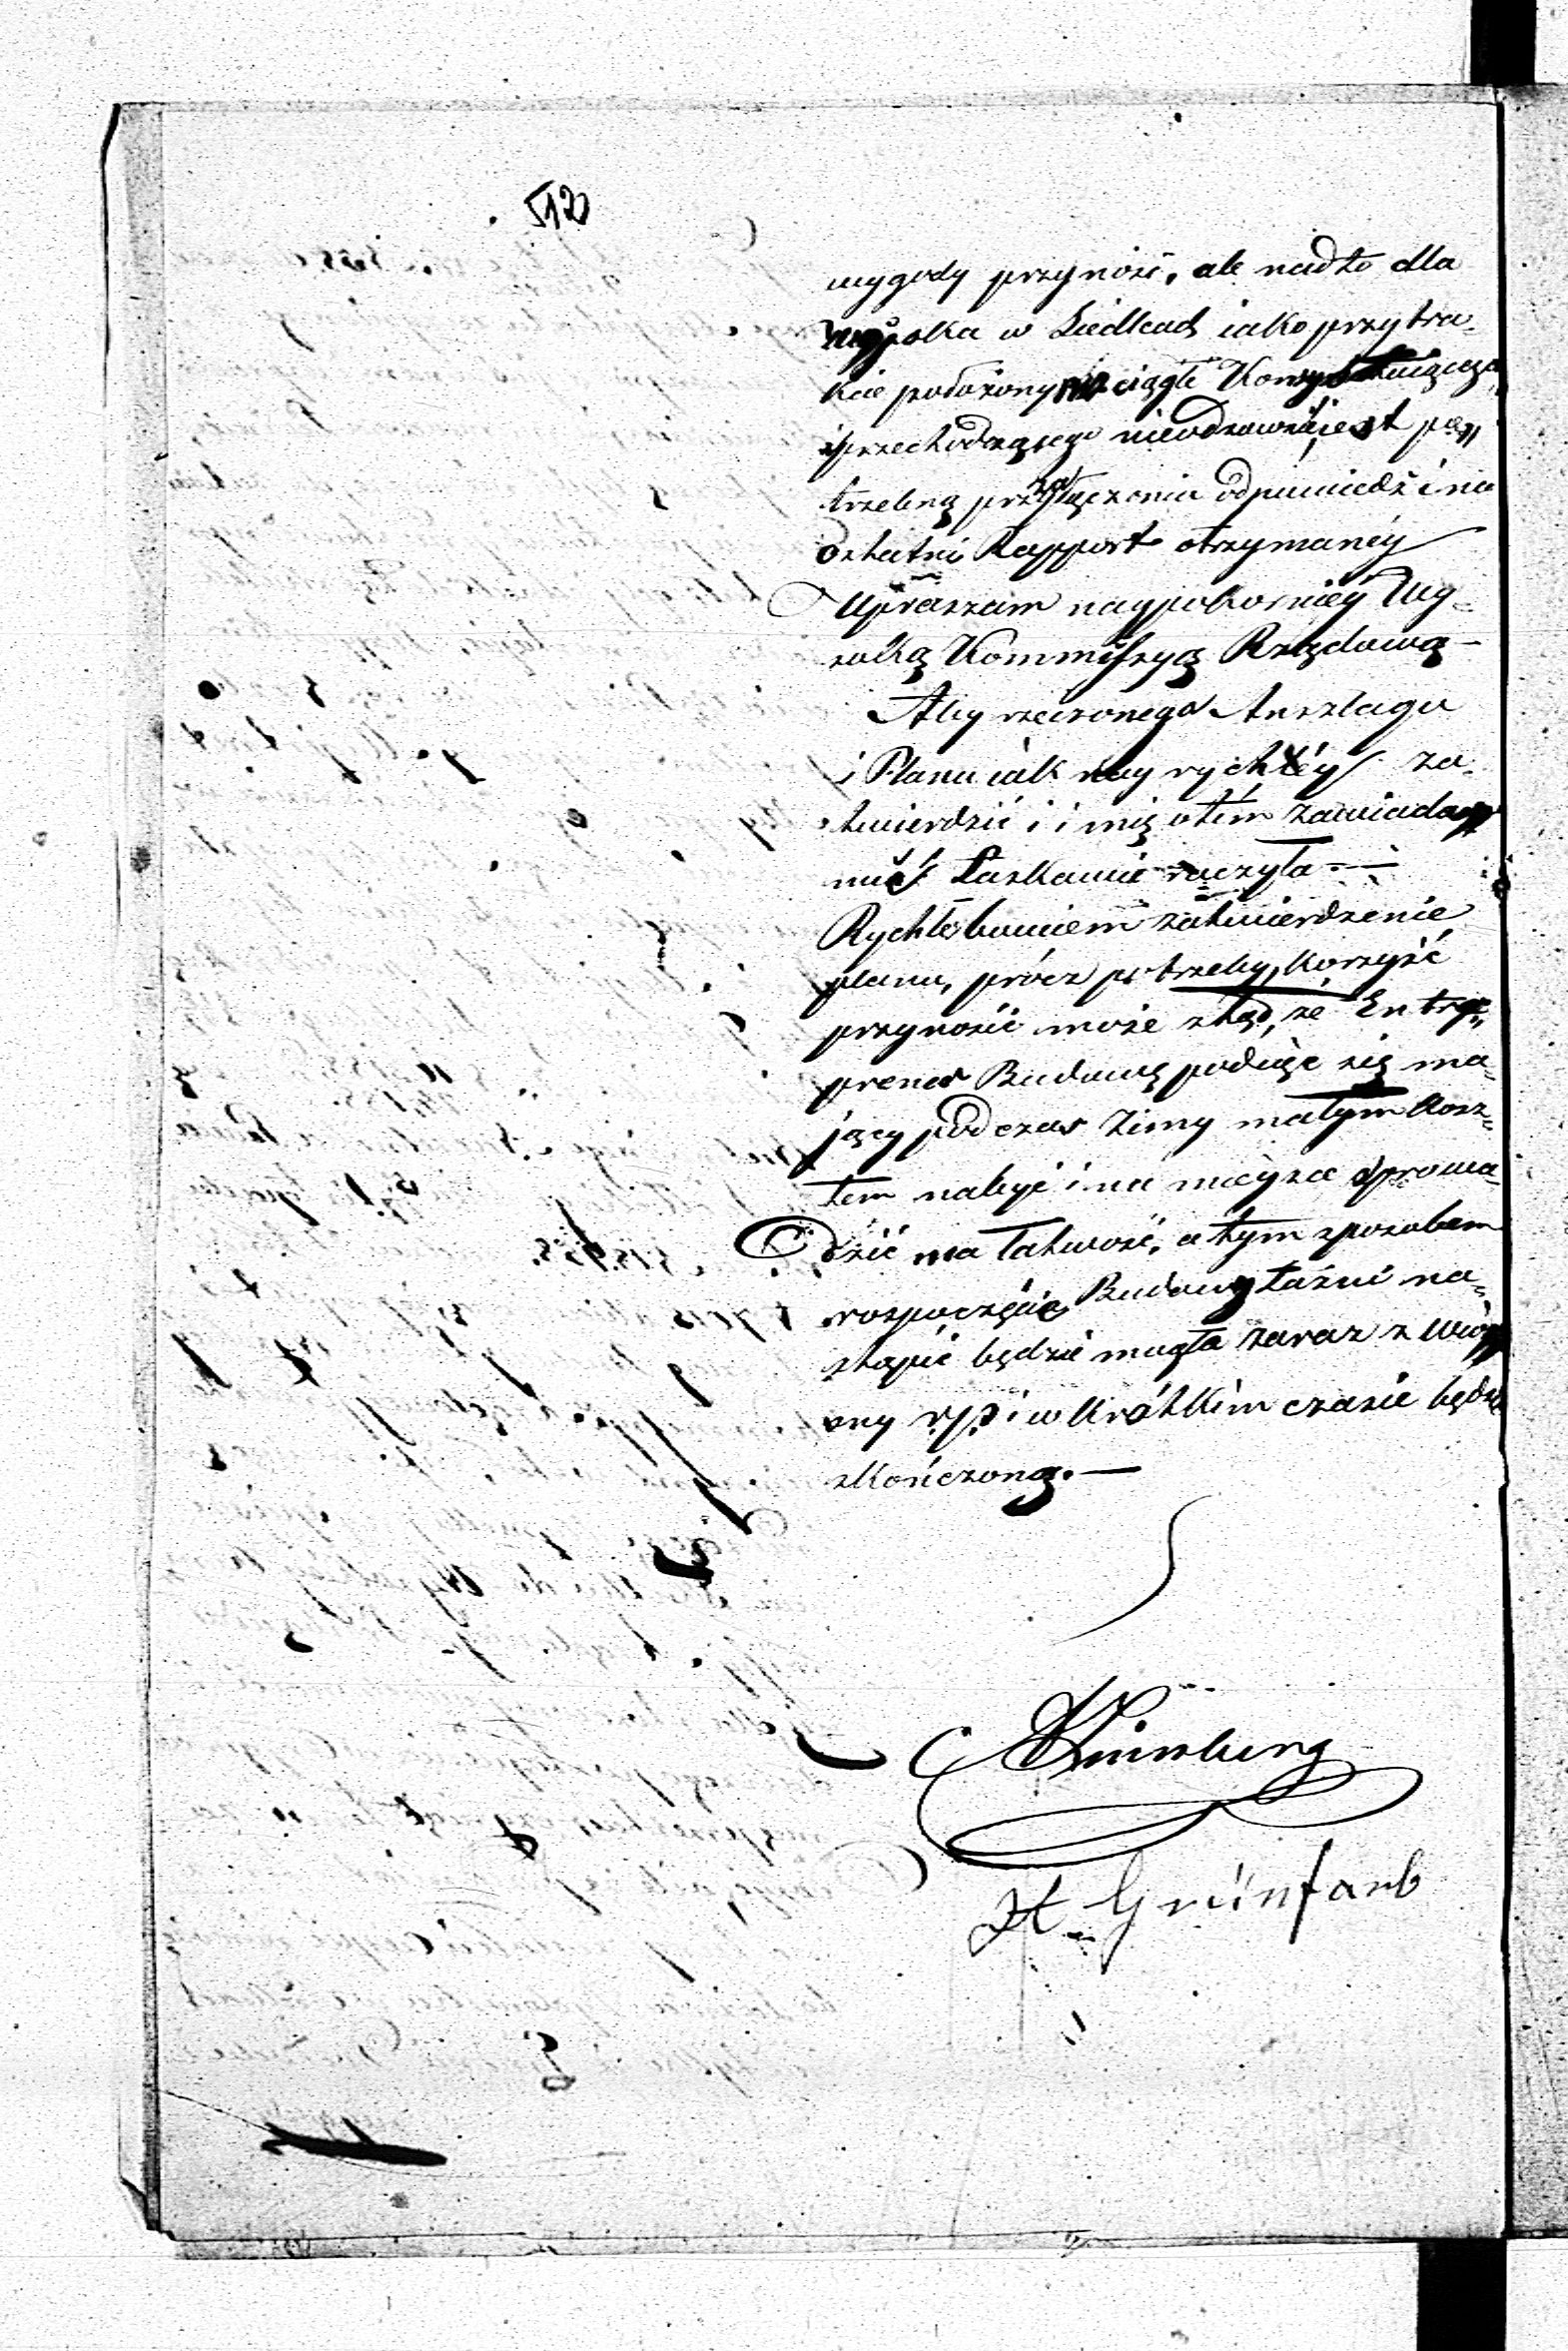 512
wygody przynosi, ale nadto dla
woyska w Siedlcach iako przy tra„
kcie położonym ciągle Konsystuiącego
i przechodzącego nieodzownie iest po„
trzebną przy załączeniu odpowiedzi na
ostatni Rapport otrzymaney
Upraszam naypokorniey Wy„
soką Kommissyą Rządową —
Aby rzeczonego Anszlagu
i Planu iak nayrychléy za„
twierdzić i mię o tém zawiado„
mić Łaskawie raczyła. —
Rychłe bowiem zatwierdzenie
planu, prócz potrzeby, korzyść
przynosić może ztąd, że Entre„
prener Budowę podiąć się ma„
jący podczas Zimy małym kosz„
tem nabyć i na mieysce sprowa„
dzić ma łatwość, a tym sposobem
rozpoczęcie Budowy łaźni na„
stąpić będzie mogła zaraz z Wio„
sny i w krótkim czasie będzie
skończoną. —
H. Grünfarb